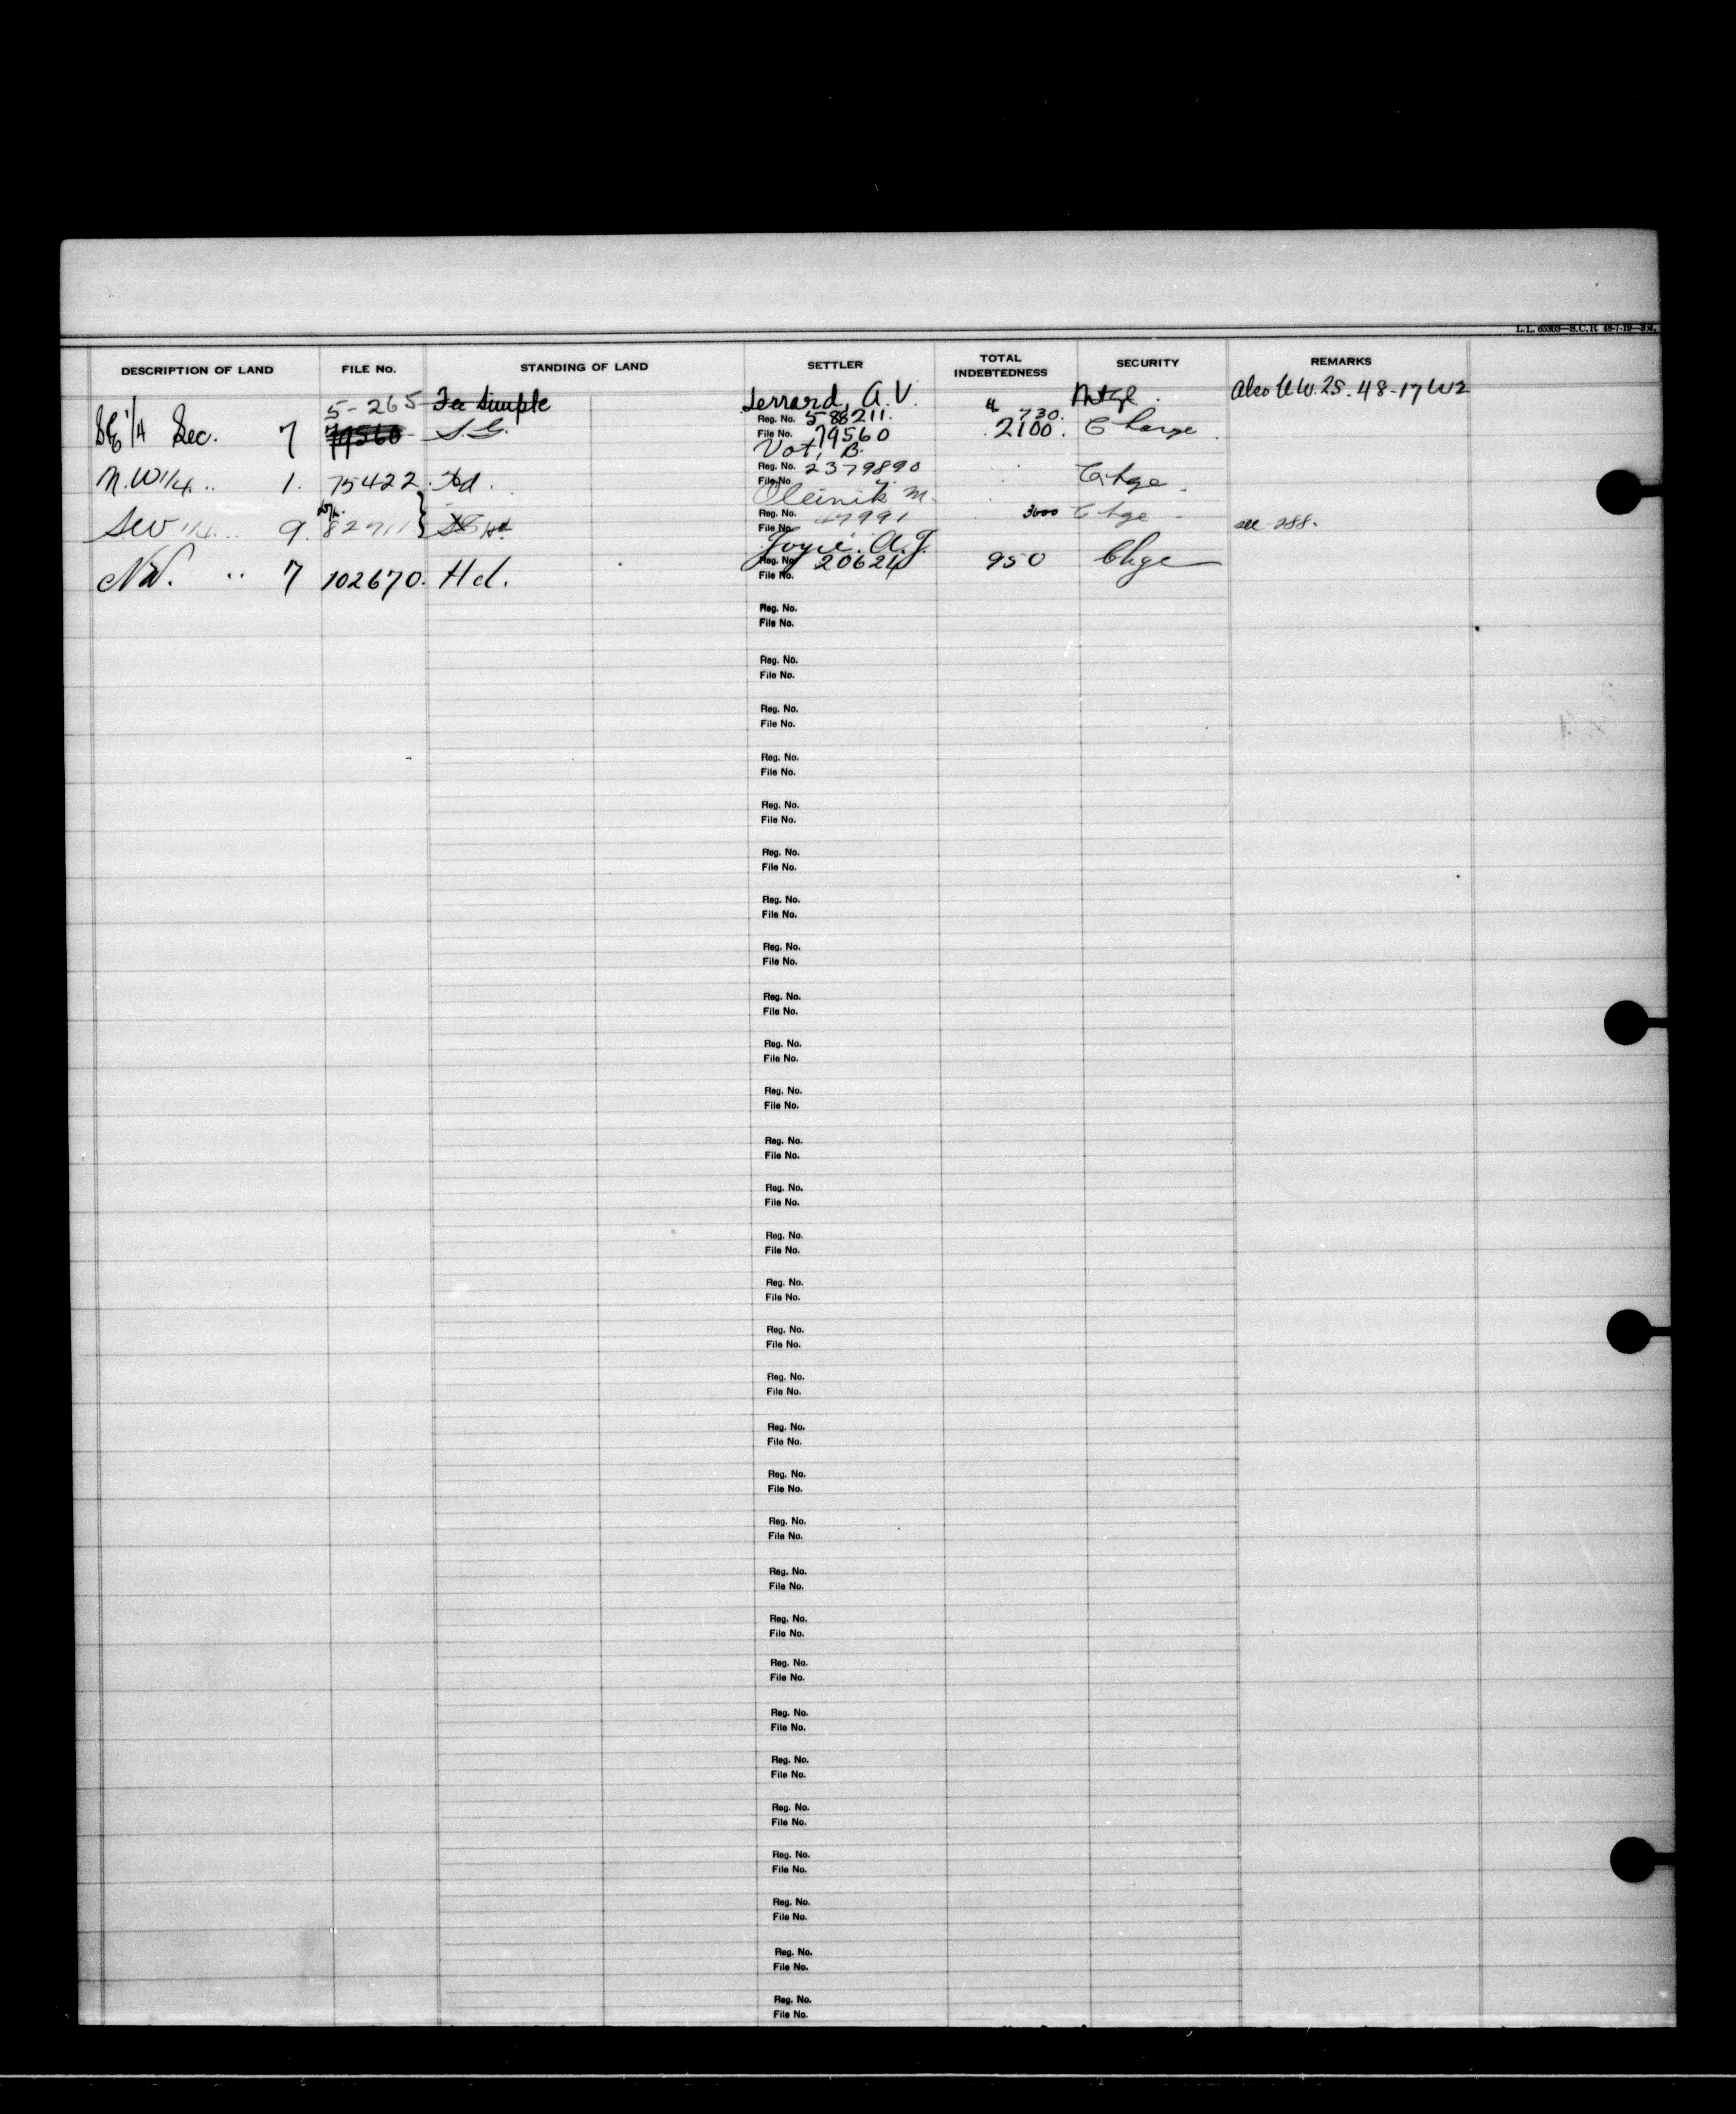 DESCRIPTION OF LAND FILE No. STANDING OF LAND SETTLER TOTAL INDEBTEDNESS SECURITY REMARKS
5-265 Fee Simple Jerrard, A.V. Mtge. Also N.W. 25-48-17 W2
SE 1/4 Sec. 7 79560 S.G. Reg. No. 588211. 730.
File No. 79560 2100. Charge
Vot, B.
N.W 1/4 .. 1. 75422. Hd. Reg. No. 2379890 Chge.
File No.
Oleinik M.
SW 1/4 .. 9. 82711 } Reg. No. 47991 3600 Chge. see 288.
File No.
Joyce. A.J.
NW. .. 7 102670. Hd. Reg. No. 20624 950 Chge
File No.
Reg. No.
File No.
Reg. No.
File No.
Reg. No.
File No.
Reg. No.
File No.
Reg. No.
File No.
Reg. No.
File No.
Reg. No.
File No.
Reg. No.
File No.
Reg. No.
File No.
Reg. No.
File No.
Reg. No.
File No.
Reg. No.
File No.
Reg. No.
File No.
Reg. No.
File No.
Reg. No.
File No.
Reg. No.
File No.
Reg. No.
File No.
Reg. No.
File No.
Reg. No.
File No.
Reg. No.
File No.
Reg. No.
File No.
Reg. No.
File No.
Reg. No.
File No.
Reg. No.
File No.
Reg. No.
File No.
Reg. No.
File No.
Reg. No.
File No.
Reg. No.
File No.
Reg. No.
File No.
Reg. No.
File No.